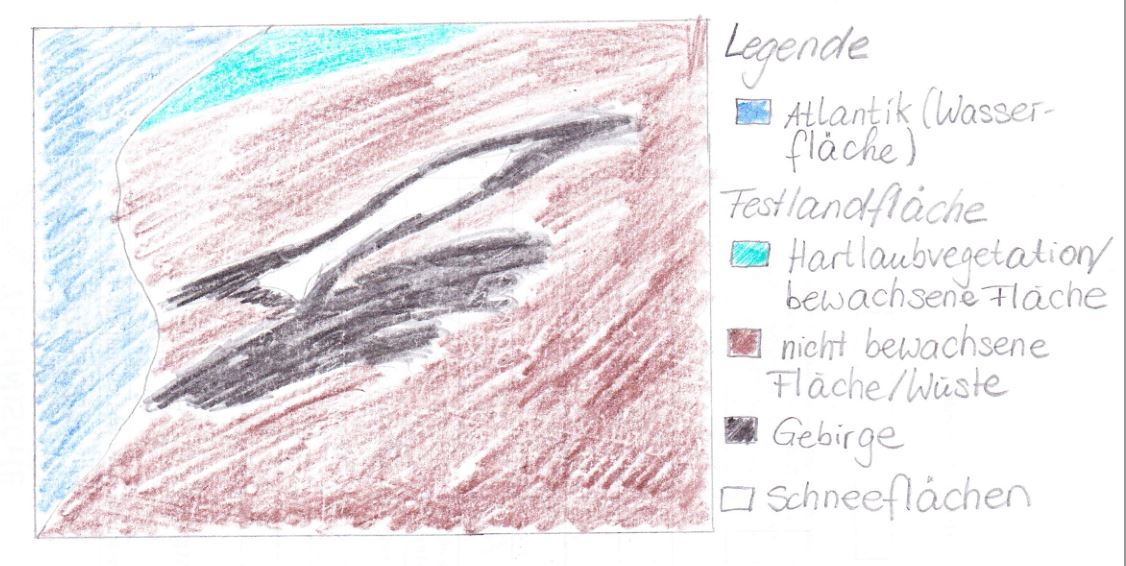 Legende
Atlantik (Wasser-
fläche)
Festlandfläche
Hartlaubvegetation/
bewachsene Fläche
nicht bewachsene
Fläche/Wüste
Gebirge
Schneeflächen